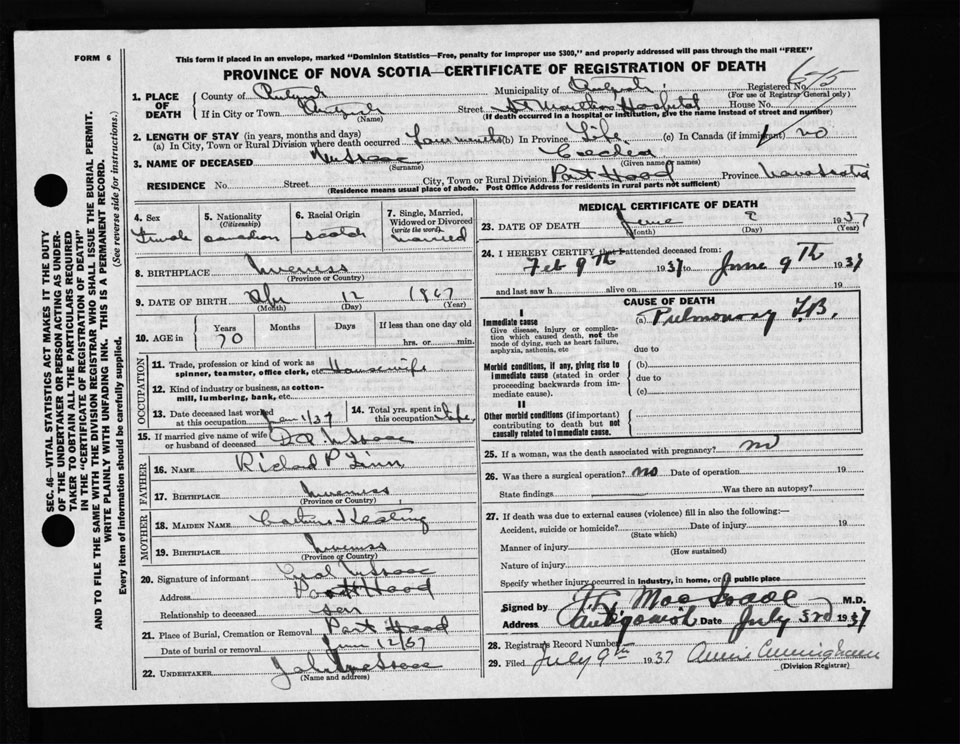 FORM 6
This form if placed in an envelope, marked "Dominion Statistics—Free, penalty for improper use $300," and properly addressed will pass through the mail "FREE"
PROVINCE OF NOVA SCOTIA—CERTIFICATE OF REGISTRATION OF DEATH
1. PLACE OF DEATH
County of
Municipality of
Registered No.
(For use of Registrar General only)
If in City or Town
(Name)
Street St Martha Hospital House No.
(If death occurred in a hospital or institution, give the name instead of street and number)
2. LENGTH OF STAY (in years, months and days)
(a) In City, Town or Rural Division where death occurred (b) In Province Life (c) In Canada (if immigrant) no
3. NAME OF DECEASED McIsaac
(Surname) (Given name or names)
RESIDENCE No. Street City, Town or Rural Division Port Hood Province Nova Scotia
(Residence means usual place of abode. Post Office Address for residents in rural parts not sufficient)
4. Sex
Female
5. Nationality
(Citizenship)
Canadian
6. Racial Origin
Scotch
7. Single, Married, Widowed or Divorced
(write the word)
Married
8. BIRTHPLACE Inverness
(Province or Country)
9. DATE OF BIRTH Apr 12 1867
(Month) (Day) (Year)
10. AGE in
Years Months Days If less than one day old
70 hrs. or min.
OCCUPATION
11. Trade, profession or kind of work as spinner, teamster, office clerk, etc. Housewife
12. Kind of industry or business, as cotton-mill, lumbering, bank, etc.
13. Date deceased last worked at this occupation Jan 1/37
14. Total yrs. spent in this occupation Life
15. If married give name of wife or husband of deceased McIsaac
FATHER
16. NAME Richard P
17. BIRTHPLACE Inverness
(Province or Country)
MOTHER
18. MAIDEN NAME Keating
19. BIRTHPLACE Inverness
(Province or Country)
20. Signature of informant McIsaac
Address Port Hood
Relationship to deceased son
21. Place of Burial, Cremation or Removal Port Hood
Date of burial or removal 12/37
22. UNDERTAKER John McIsaac
(Name and address)
MEDICAL CERTIFICATE OF DEATH
23. DATE OF DEATH June 1937
(Month) (Day) (Year)
24. I HEREBY CERTIFY that I attended deceased from:
Feb 9th 1937 to June 9th 1937
and last saw h alive on 19
CAUSE OF DEATH
I
Immediate cause
Give disease, injury or complication which caused death, not the mode of dying, such as heart failure, asphyxia, asthenia, etc
(a) Pulmonary T.B.
due to
Morbid conditions, if any, giving rise to immediate cause (stated in order proceeding backwards from immediate cause).
(b)
due to
(c)
II
Other morbid conditions (if important) contributing to death but not causally related to immediate cause.
25. If a woman, was the death associated with pregnancy? no
26. Was there a surgical operation? no Date of operation 19
State findings Was there an autopsy?
27. If death was due to external causes (violence) fill in also the following:—
Accident, suicide or homicide? Date of injury 19
(State which)
Manner of injury
(How sustained)
Nature of injury
Specify whether injury occurred in industry, in home, or in public place
Signed by MacIsaac M.D.
Address Antigonish Date July 3rd 1937
28. Registrar's Record Number
29. Filed July 9th 1937 Annie Cunningham
(Division Registrar)
SEC. 46—VITAL STATISTICS ACT MAKES IT THE DUTY OF THE UNDERTAKER OR PERSON ACTING AS UNDERTAKER TO OBTAIN ALL THE PARTICULARS REQUIRED IN THE "CERTIFICATE OF REGISTRATION OF DEATH"
AND TO FILE THE SAME WITH THE DIVISION REGISTRAR WHO SHALL ISSUE THE BURIAL PERMIT.
WRITE PLAINLY WITH UNFADING INK. THIS IS A PERMANENT RECORD.
Every item of information should be carefully supplied. (See reverse side for instructions.)